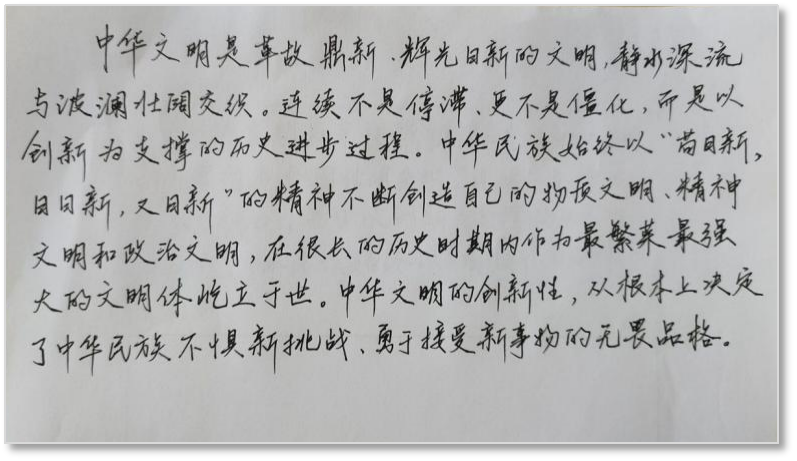 中华文明是革故鼎新、辉光日新的文明,静水深流
与波澜壮阔交织。连续不是停滞、更不是僵化,而是以
创新为支撑的历史进步过程。中华民族始终以“苟日新,
日日新,又日新”的精神不断创造自己的物质文明、精神
文明和政治文明,在很长的历史时期内作为最繁荣最强
大的文明体屹立于世。中华文明的创新性,从根本上决定
了中华民族不惧新挑战、勇于接受新事物的无畏品格。